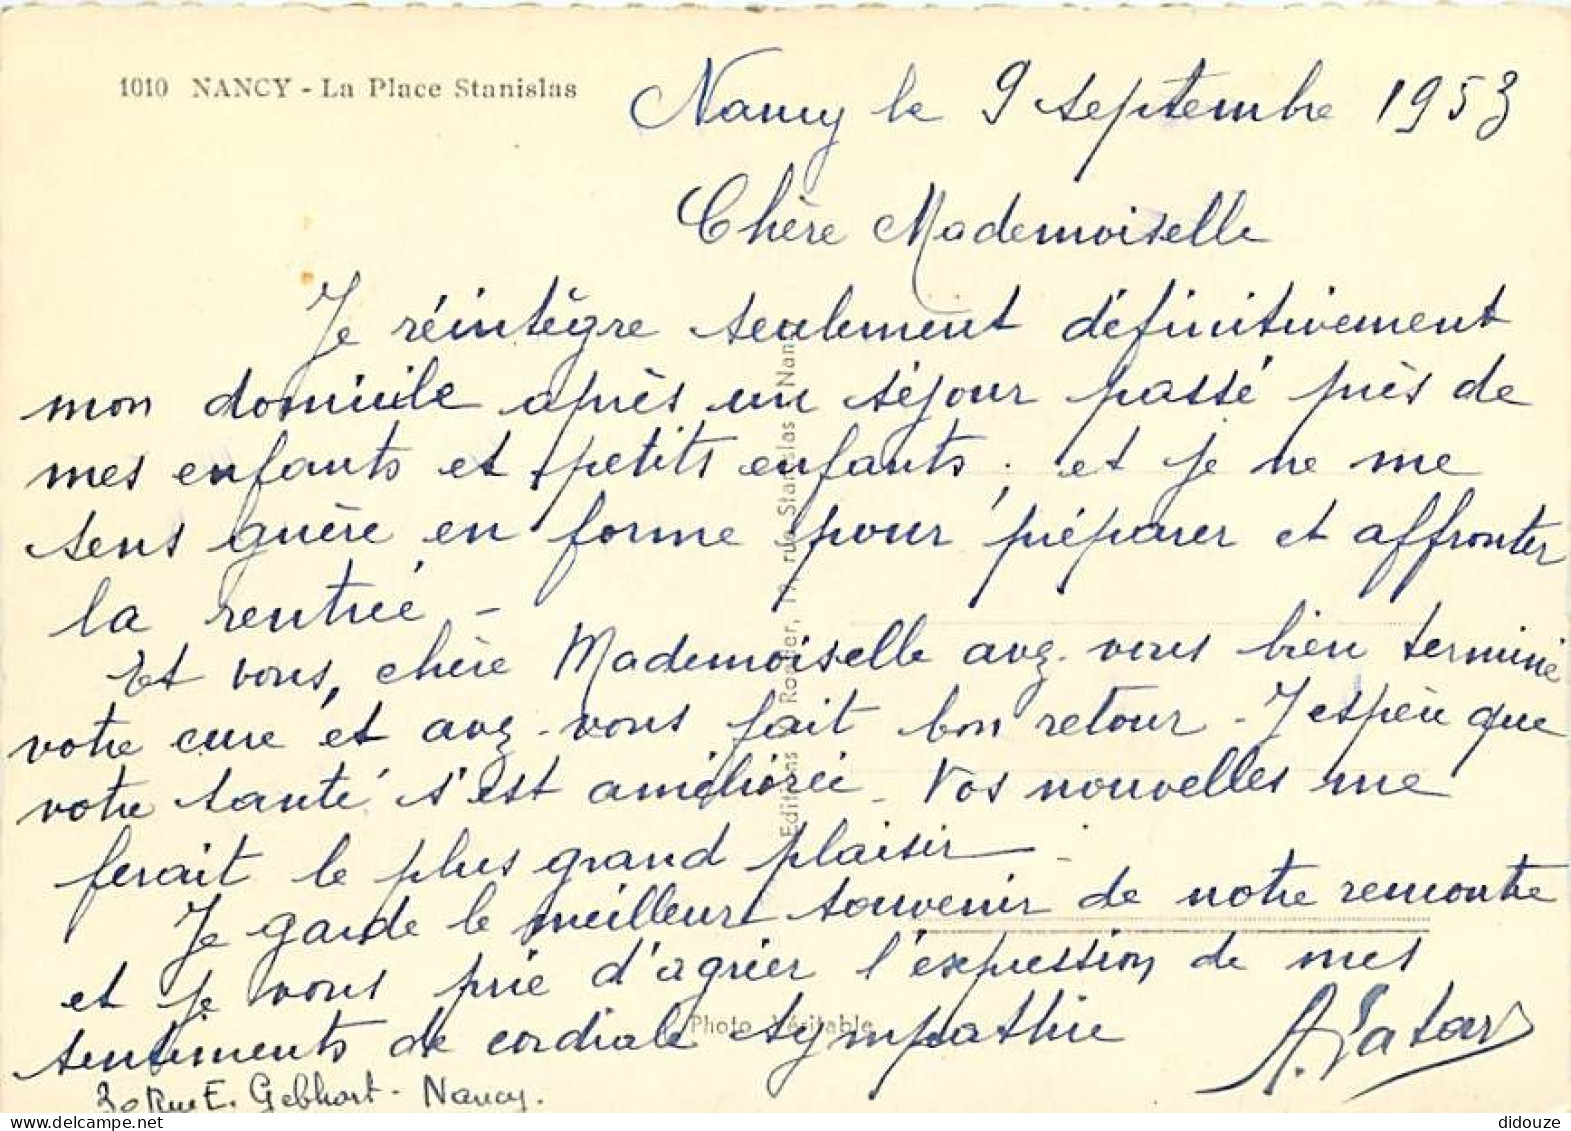 1010 NANCY - La Place Stanislas
Nancy le 9 septembre 1953
Chère Mademoiselle
Je réintègre seulement définitivement
mon domicile après un séjour passé près de
mes enfants et petits enfants, et je ne me
sens guère en forme pour préparer et affronter
la rentrée -
Et vous, chère Mademoiselle avez-vous bien terminé
votre cure et avez-vous fait bon retour - J'espère que
votre santé s'est améliorée - Vos nouvelles me
ferait le plus grand plaisir -
Je garde le meilleur souvenir de notre rencontre
et je vous prie d'agréer l'expression de mes
sentiments de cordiale sympathie
30 Rue E. Gebhart - Nancy.
Editions 17, rue Stanislas Nancy
Photo Véritable
didouze